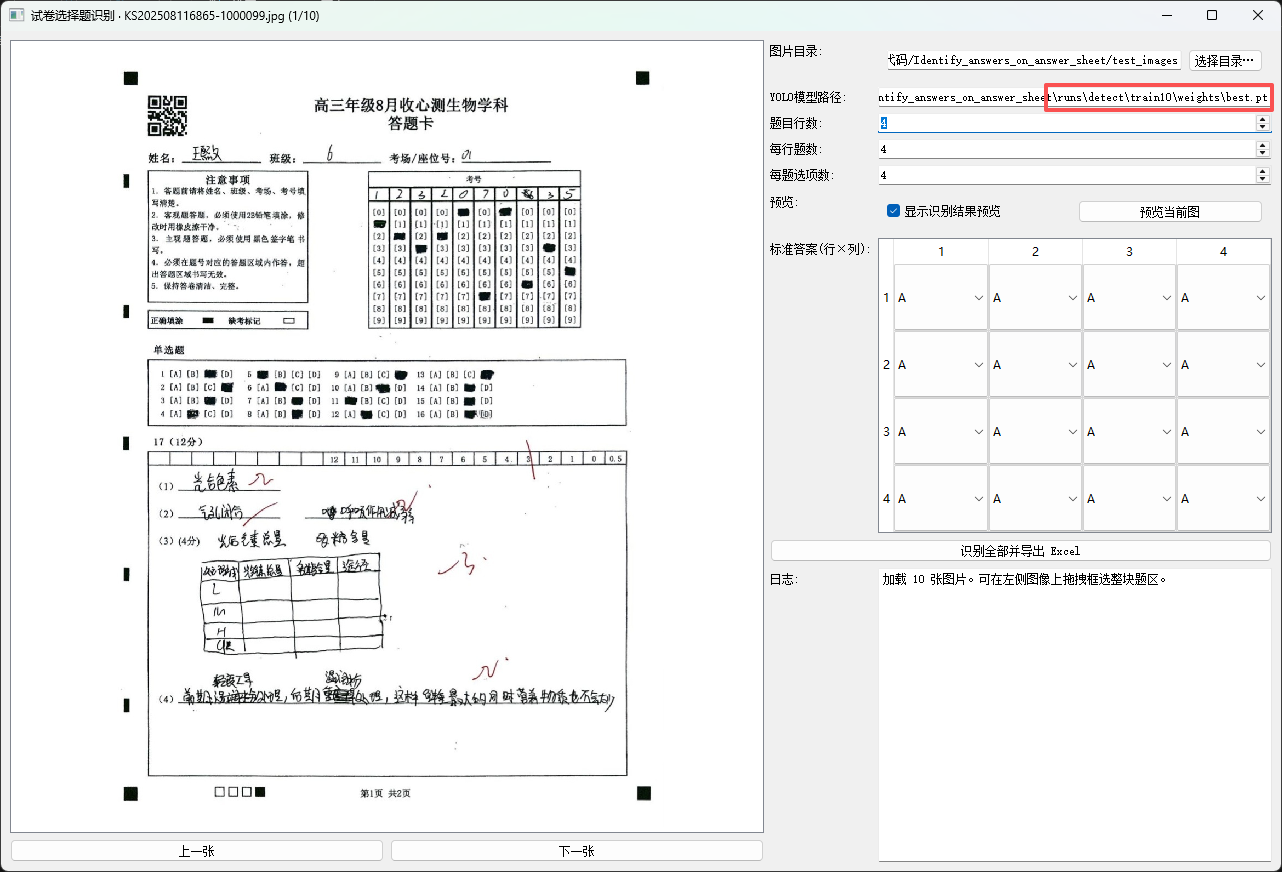 试卷选择题识别 - KS202508116865-1000099.jpg (1/10)
高三年级8月收心测生物学科
答题卡
姓名： 班级： 6 考场/座位号： 01
注意事项
1．答题前请将姓名、班级、考场、考号填写清楚。
2．客观题答题，必须使用2B铅笔填涂，修改时用橡皮擦干净。
3．主观题答题，必须使用黑色签字笔书写。
4．必须在题号对应的答题区域内作答，超出答题区域书写无效。
5．保持答卷清洁、完整。
正确填涂 缺考标记
考号
1 2 3 2 0 7 0 3 5
[0] [0] [0] [0] [0] [0] [0]
[1] [1] [1] [1] [1] [1] [1] [1]
[2] [2] [2] [2] [2] [2] [2]
[3] [3] [3] [3] [3] [3] [3]
[4] [4] [4] [4] [4] [4] [4] [4] [4] [4]
[5] [5] [5] [5] [5] [5] [5] [5] [5]
[6] [6] [6] [6] [6] [6] [6] [6] [6]
[7] [7] [7] [7] [7] [7] [7] [7] [7]
[8] [8] [8] [8] [8] [8] [8] [8] [8] [8]
[9] [9] [9] [9] [9] [9] [9] [9] [9] [9]
单选题
1 [A] [B] [D] 5 [B] [C] [D] 9 [A] [B] [C] 13 [A] [B] [C]
2 [A] [B] [C] 6 [A] [C] [D] 10 [A] [B] [D] 14 [A] [B] [D]
3 [A] [B] [D] 7 [A] [B] [D] 11 [B] [C] [D] 15 [A] [B] [D]
4 [A] [C] [D] 8 [A] [B] [D] 12 [A] [C] [D] 16 [A] [B] [D]
17（12分）
12 11 10 9 8 7 6 5 4 3 2 1 0 0.5
（1） 光合色素
（2） 气孔闭合
（3）(4分)
L
M
H
（4）
第1页 共2页
上一张
下一张
图片目录：
代码/Identify_answers_on_answer_sheet/test_images
选择目录…
YOLO模型路径：
ntify_answers_on_answer_sheet\runs\detect\train10\weights\best.pt
题目行数： 4
每行题数： 4
每题选项数： 4
预览：
显示识别结果预览
预览当前图
标准答案(行×列)：
1 2 3 4
1 A A A A
2 A A A A
3 A A A A
4 A A A A
识别全部并导出 Excel
日志：
加载 10 张图片。可在左侧图像上拖拽框选整块题区。